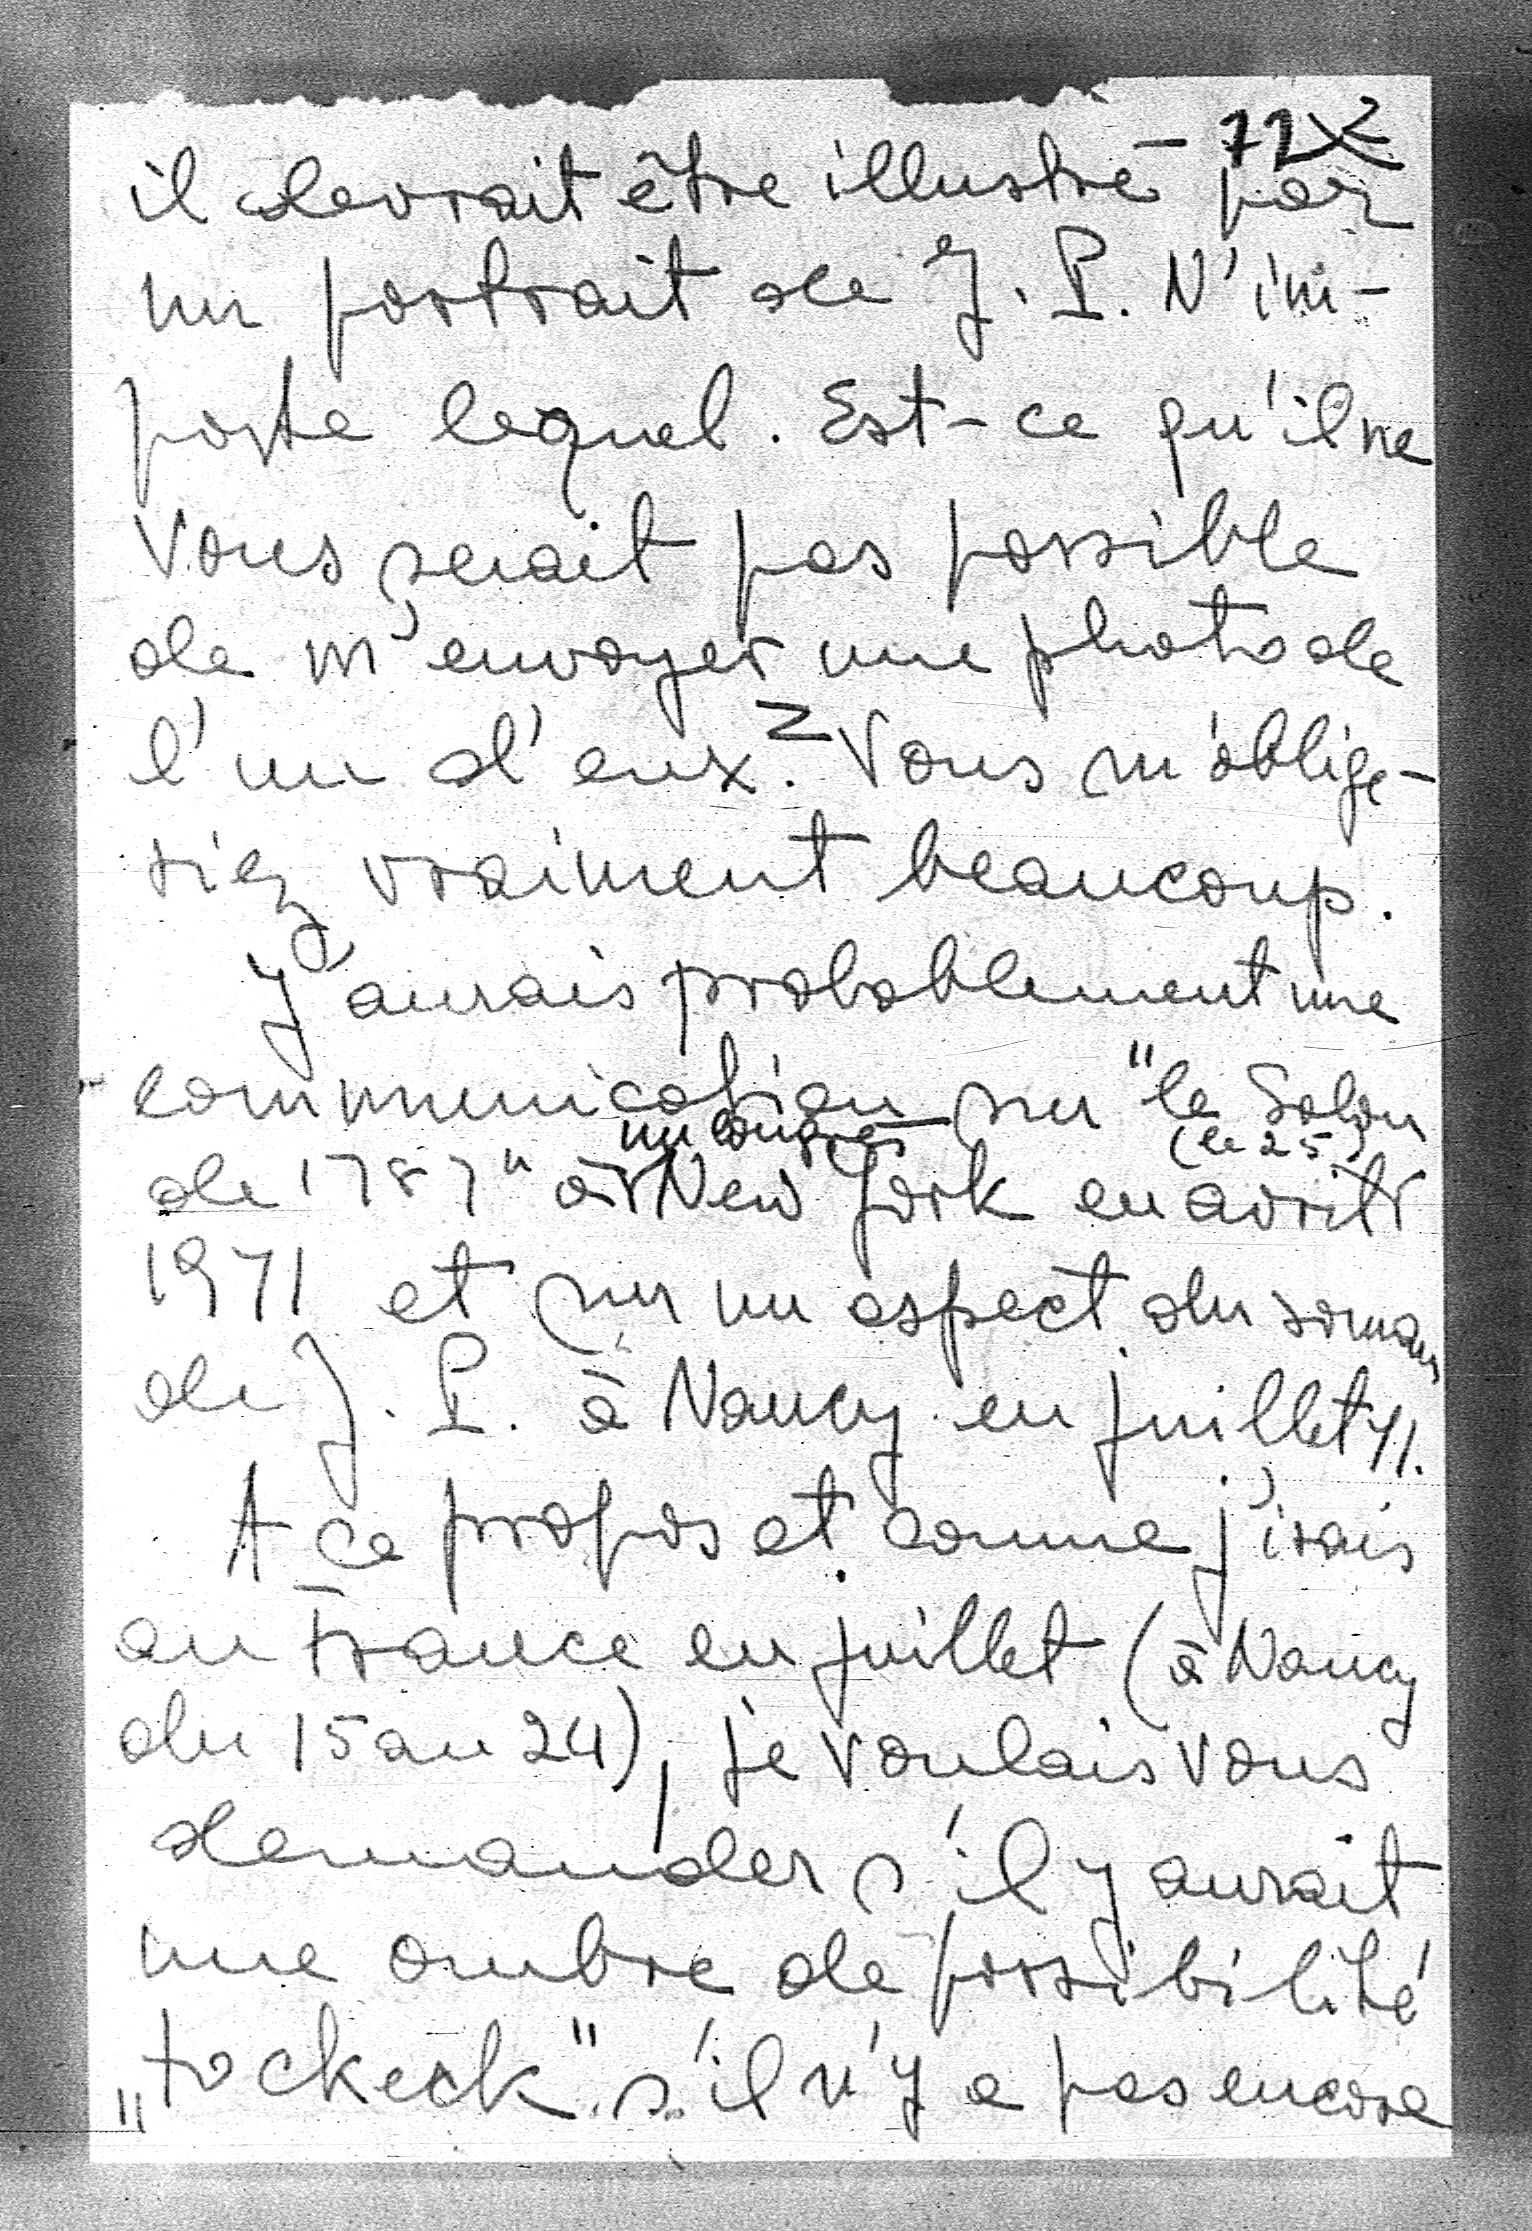 72
il devrait être illustré par
un portrait de J. P. N'im-
porte lequel. Est-ce qu'il ne
vous serait pas possible
de m'envoyer une photo de
l'un d'eux? Vous m'oblige-
riez vraiment beaucoup.
J'aurais probablement une
communication sur "le Salon
de 1787" à un congrès New York en avril (le 25)
1971 et sur un aspect du roman
de J. P. à Nancy en juillet 71.
A ce propos et comme j'irais
en France en juillet (à Nancy
du 15 au 24), je voulais vous
demander s'il y aurait
une ombre de possibilité
„to ckeck" s'il n'y a pas encore